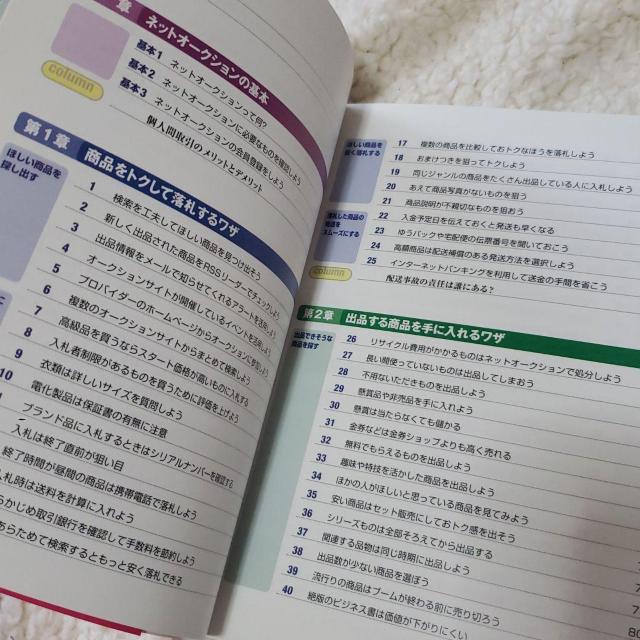 章 ネットオークションの基本
基本1 ネットオークションって何?
基本2 ネットオークションに必要なものを確認しよう
基本3 ネットオークションの会員登録をしよう
column 個人間取引のメリットとデメリット
第1章 商品をトクして落札するワザ
ほしい商品を
探し出す
1 検索を工夫してほしい商品を見つけ出そう
2 新しく出品された商品をRSSリーダーでチェックしよう
3 出品情報をメールで知らせてくれるアラートを活用しよう
4 オークションサイトが開催しているイベントを活用しよう
5 プロバイダーのホームページからオークションに参加しよう
6 複数のオークションサイトからまとめて検索しよう
7 高級品を買うならスタート価格が高いものに入札する
8 入札者制限があるものを買うために評価を上げよう
9 衣類は詳しいサイズを質問しよう
10 電化製品は保証書の有無に注意
ブランド品に入札するときはシリアルナンバーを確認する
入札は終了直前が狙い目
終了時間が昼間の商品は携帯電話で落札しよう
札時は送料を計算に入れよう
らかじめ取引銀行を確認して手数料を節約しよう
あらためて検索するともっと安く落札できる
ほしい商品を
安く落札する
17 複数の商品を比較しておトクなほうを落札しよう
18 おまけつきを狙ってトクしよう
19 同じジャンルの商品をたくさん出品している人に入札しよう
20 あえて商品写真がないものを狙う
21 商品説明が不親切なものを狙おう
落札した商品の
発送を
スムーズにする
22 入金予定日を伝えておくと発送も早くなる
23 ゆうパックや宅配便の伝票番号を聞いておこう
24 高額商品は配送補償のある発送方法を選択しよう
25 インターネットバンキングを利用して送金の手間を省こう
column 配送事故の責任は誰にある?
第2章 出品する商品を手に入れるワザ
出品できそうな
商品を探す
26 リサイクル費用がかかるものはネットオークションで処分しよう
27 長い間使っていないものは出品してしまおう
28 不用ないただきものも出品しよう
29 懸賞品や非売品を手に入れよう
30 懸賞は当たらなくても儲かる
31 金券などは金券ショップよりも高く売れる
32 無料でもらえるものを出品しよう
33 趣味や特技を活かした商品を出品しよう
34 ほかの人がほしいと思っている商品を見てみよう
35 安い商品はセット販売にしておトク感を出そう
36 シリーズものは全部そろえてから出品する
37 関連する品物は同じ時期に出品しよう
38 出品数が少ない商品を選ぼう
39 流行りの商品はブームが終わる前に売り切ろう
40 絶版のビジネス書は価値が下がりにくい